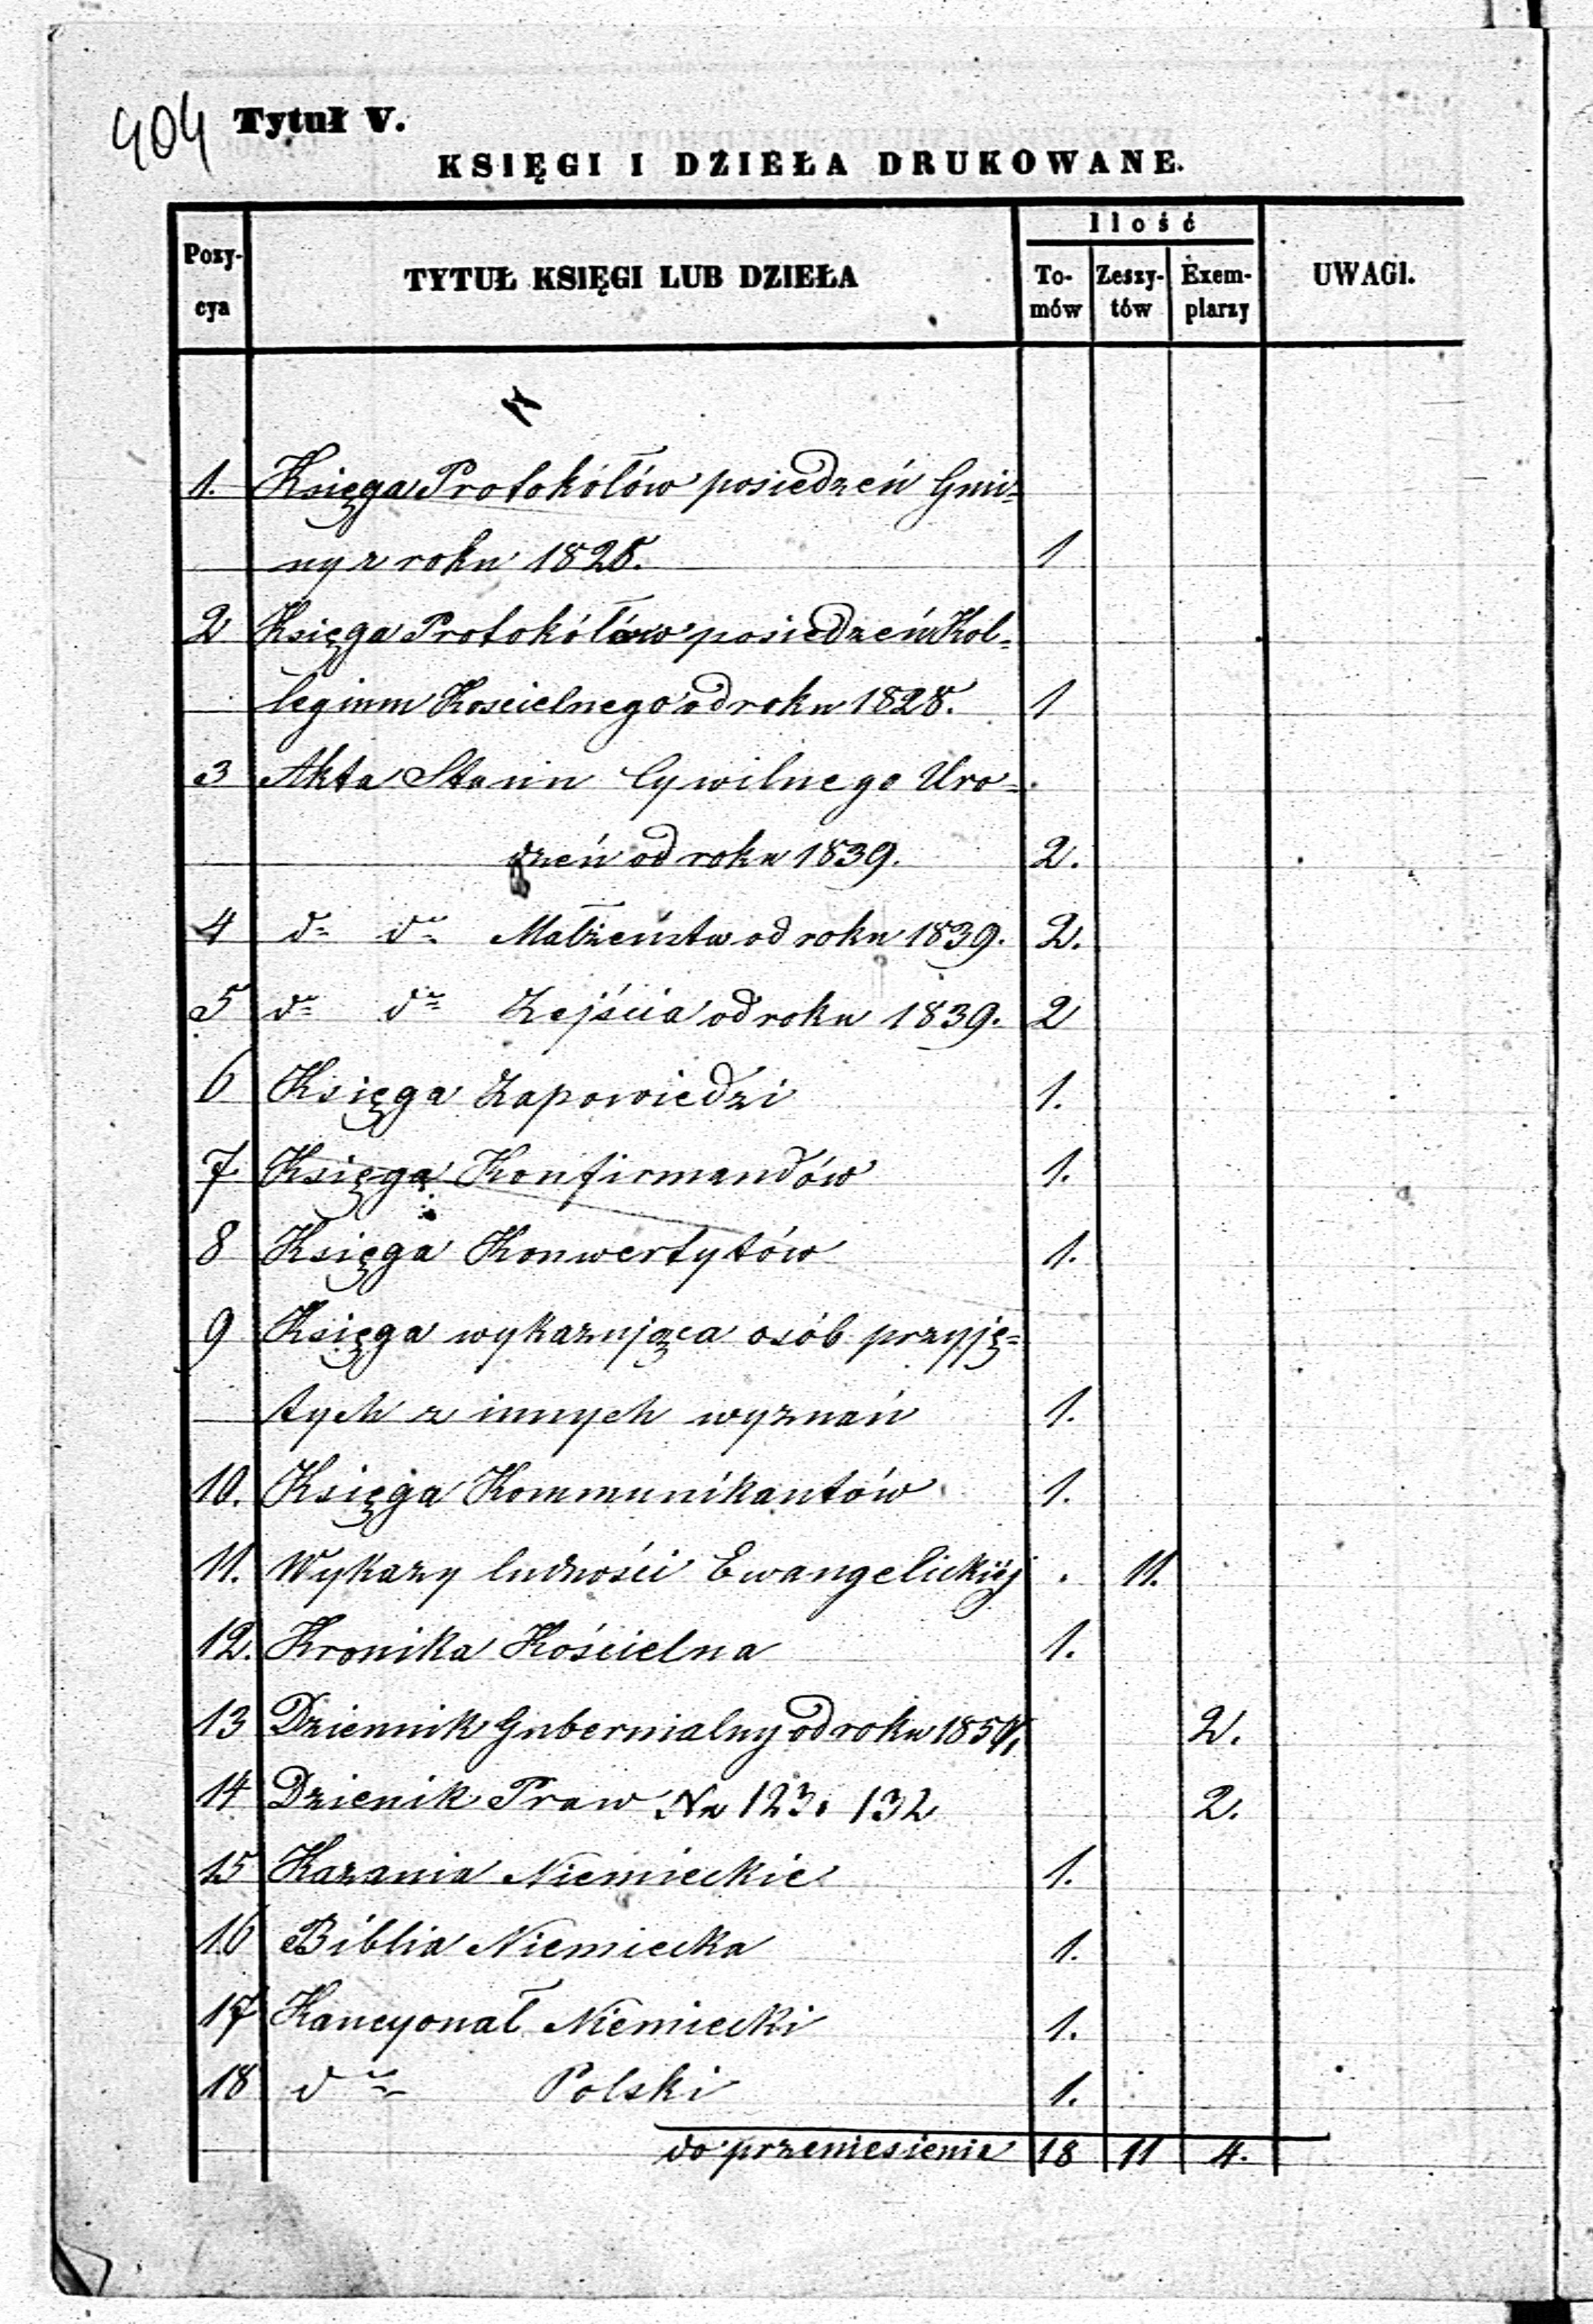 404 Tytuł V.
KSIĘGI I DZIEŁA DRUKOWANE.
Pozy-cya TYTUŁ KSIĘGI LUB DZIEŁA Ilość To-mów Zeszy-tów Exem-plarzy UWAGI.
1. Księga Protokółów posiedzeń Gmi-
ny z roku 1828. 1
2 Księga Protokółów posiedzeń Kol-
legium Kościelnego od roku 1828. 1
3 Akta Stanu Cywilnego Uro-
dzeń od roku 1839. 2.
4 do do Małżeństw od roku 1839. 2.
5 do do Zejścia od roku 1839. 2
6 Księga Zapowiedzi 1.
7 Księga Konfirmandów 1.
8 Księga Konwertytów 1.
9 Księga wykazująca osób przyję-
tych z innych wyznań 1.
10. Księga Kommunikantów 1.
11. Wykazy ludności Ewangelickiéj . 11.
12. Kronika Kościelna 1.
13 Dziennik Gubernialny od roku 2.
14 Dzienik Praw No 123 i 132 2.
15 Kazania Niemieckie 1.
16 Biblia Niemiecka 1.
17 Kancyonał Niemiecki 1.
18 do Polski 1.
do przeniesienia 18 11 4.